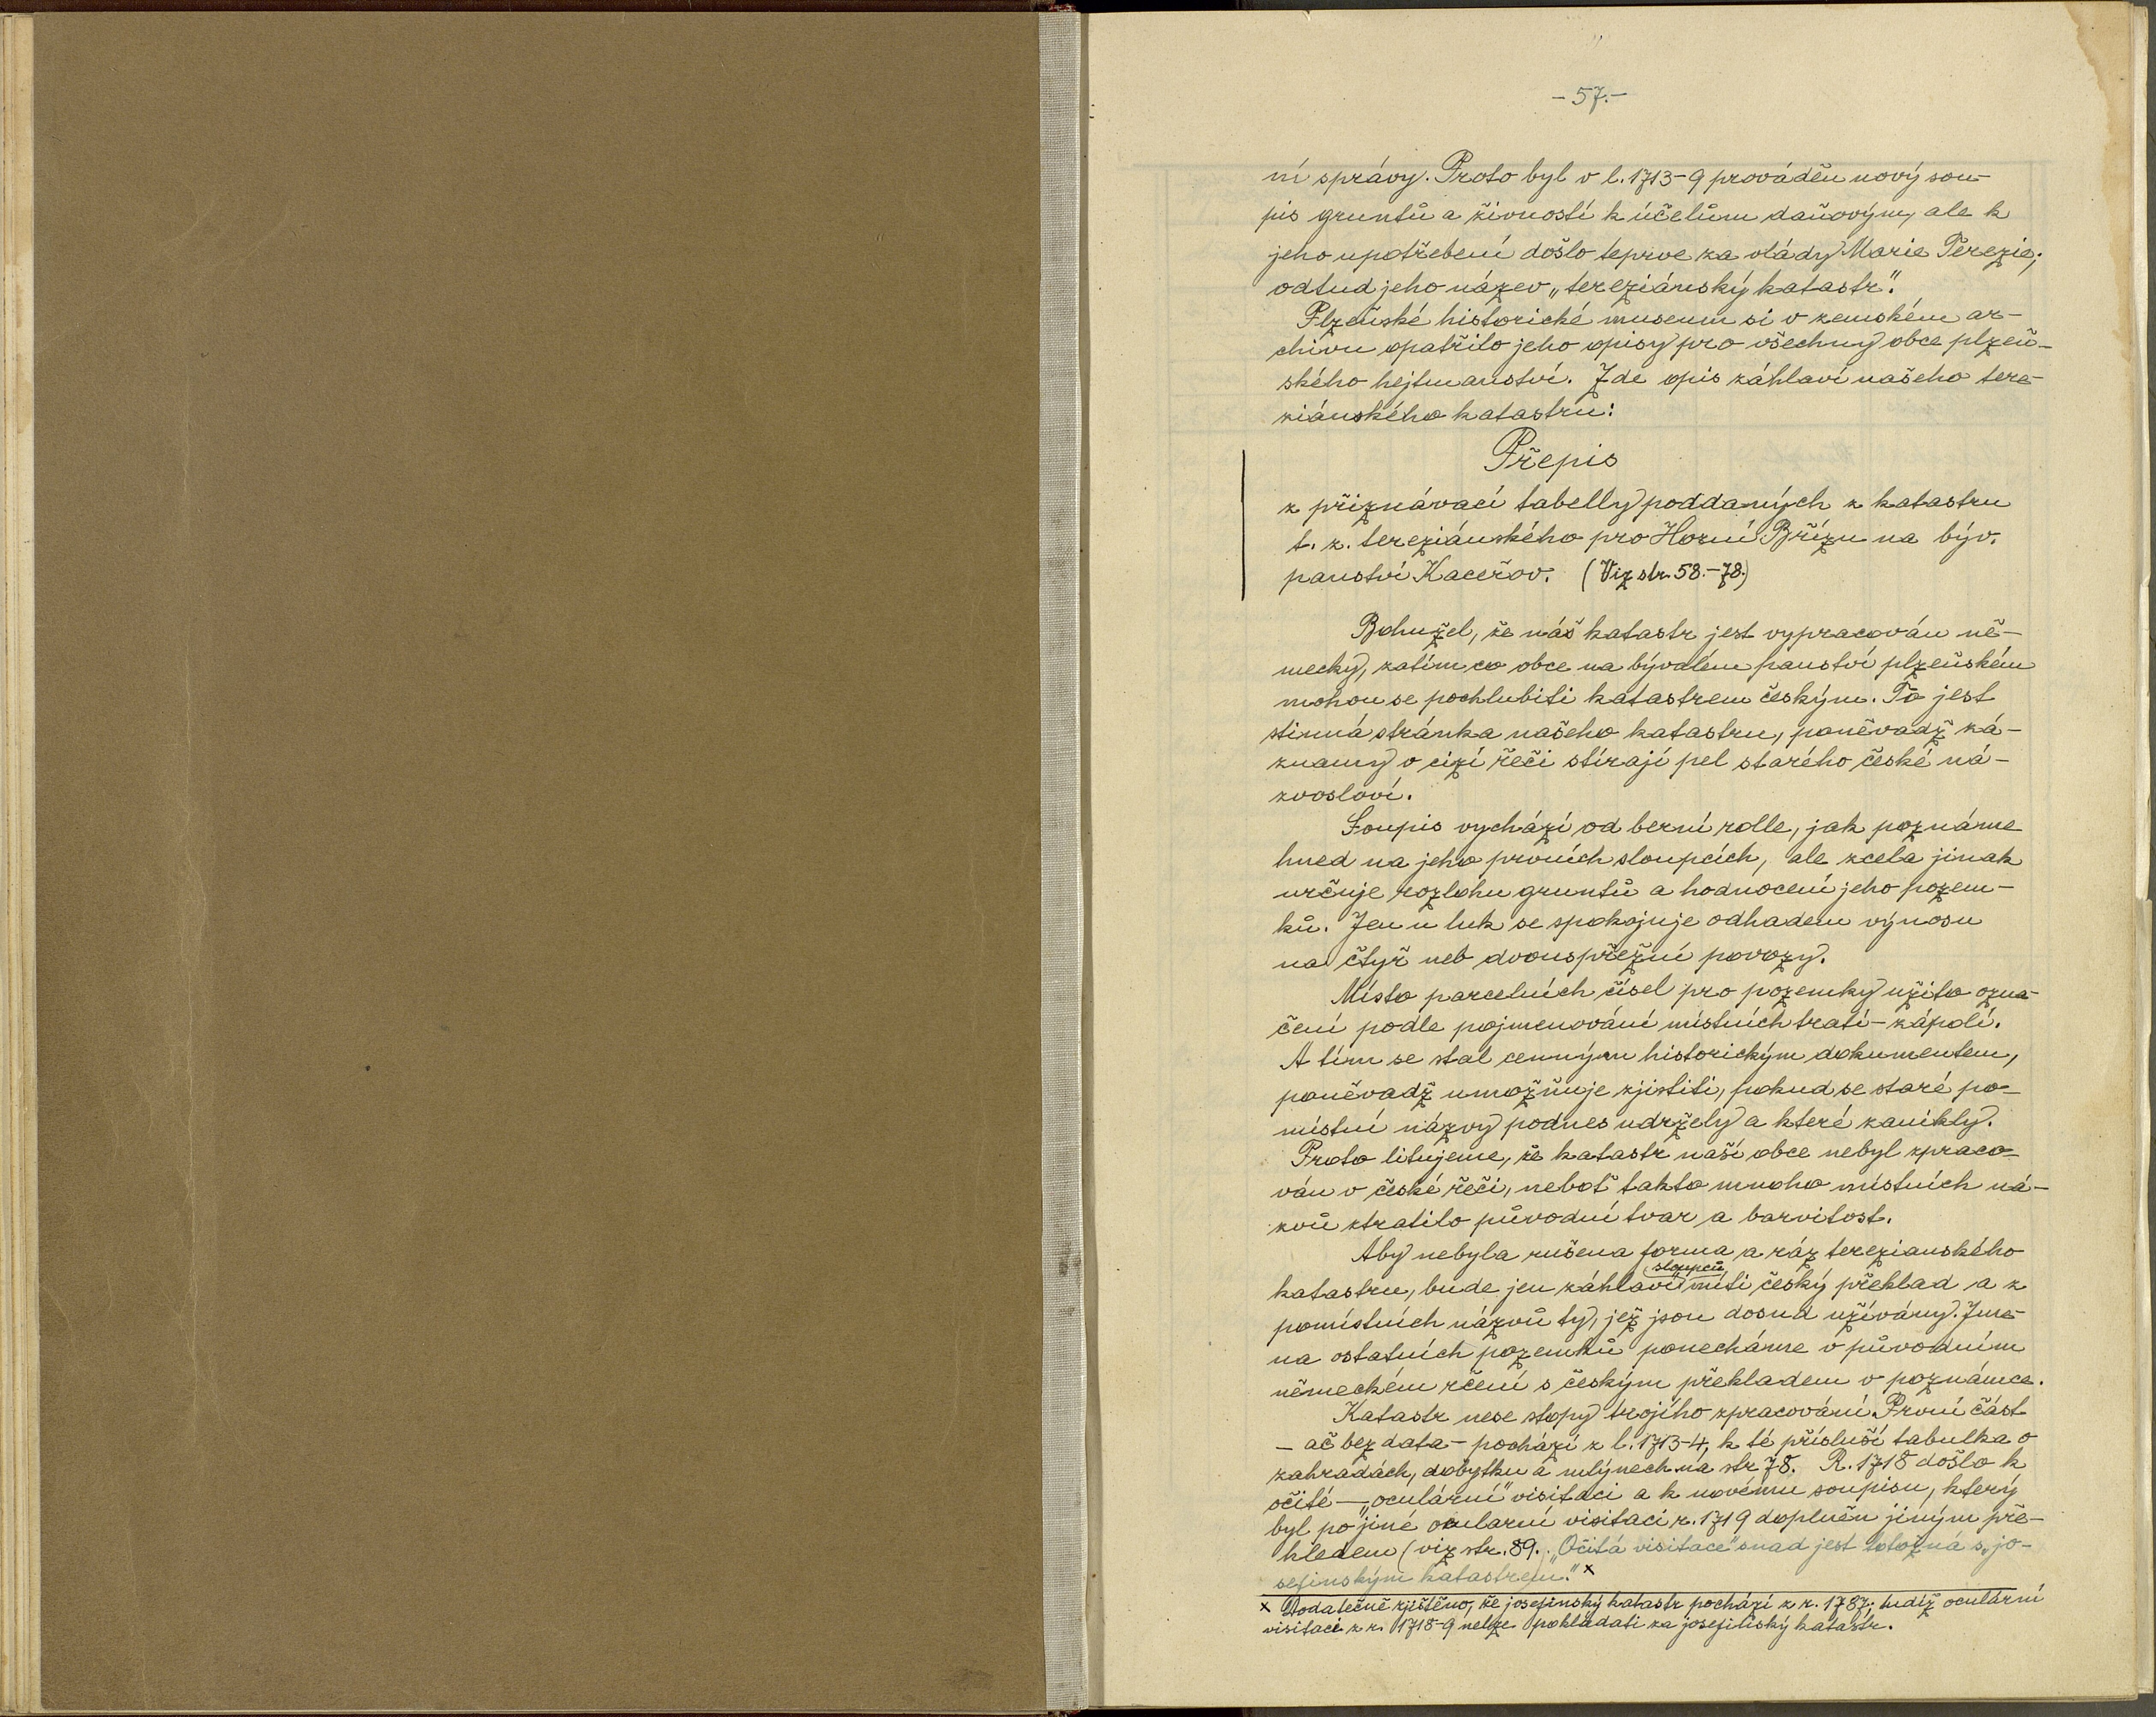 - 57. -
ní správy. Proto byl v l. 1713-9 prováděn nový sou-
pis gruntů a živností k účelům daňovým, ale k
jeho upotřebení došlo teprve za vlády Marie Terezie;
odtud jeho název „tereziánský katastr".
Plzeňské historické museum si v zemském ar-
chivu opatřilo jeho opisy pro všechny obce plzeň-
ského hejtmanství. Zde opis záhlaví našeho tere-
ziánského katastru:
Přepis
z přiznávací tabelly poddaných z katastru
t. z. tereziánského pro Horní Břízu na býv.
panství Kaceřov. (Viz str. 58.-78.)
Bohužel, že náš katastr jest vypracován ně-
mecky, zatím co obce na bývalém panství plzeňském
mohou se pochlubiti katastrem českým. To jest
stinná stránka našeho katastru, poněvadž zá-
znamy v cizí řeči stírají pel starého české ná-
zvosloví.
Soupis vychází od berní rolle, jak poznáme
hned na jeho prvních sloupcích, ale zcela jinak
určuje rozlohu gruntů a hodnocení jeho pozem-
ků. Jen u luk se spokojuje odhadem výnosu
na čtyř neb dvouspřežní povozy.
Místo parcelních čísel pro pozemky užito ozna-
čení podle pojmenování místních tratí - zápolí.
A tím se stal cenným historickým dokumentem,
poněvadž umožňuje zjistiti, pokud se staré po-
místní názvy podnes udržely a které zanikly.
Proto litujeme, že katastr naší obce nebyl zpraco-
ván v české řeči, neboť takto mnoho místních ná-
zvů ztratilo původní tvar a barvitost.
Aby nebyla rušena forma a ráz terezianského
sloupců
katastru, bude jen záhlaví míti český překlad a z
pomístních názvů ty, jež jsou dosud užívány. Jmé-
na ostatních pozemků ponecháme v původním
německém rčení s českým překladem v poznámce.
Katastr nese stopy trojího zpracování. První část
- ač bez data - pochází z l. 1713-4, k té přísluší tabulka o
zahradách, dobytku a mlýnech na str 78. R. 1718 došlo k
očité - „oculární" visitaci a k novému soupisu, který
byl po jiné ocularní visitaci r. 1719 doplněn jiným pře-
hledem (viz str. 89. „Očitá visitace" snad jest totožná s „jo-
sefinským katastrem." x
x Dodatečně zjištěno, že josefinský katastr pochází z r. 1787; tudíž oculární
visitaci z r. 1718-9 nelze pokládati za josefinský katastr.